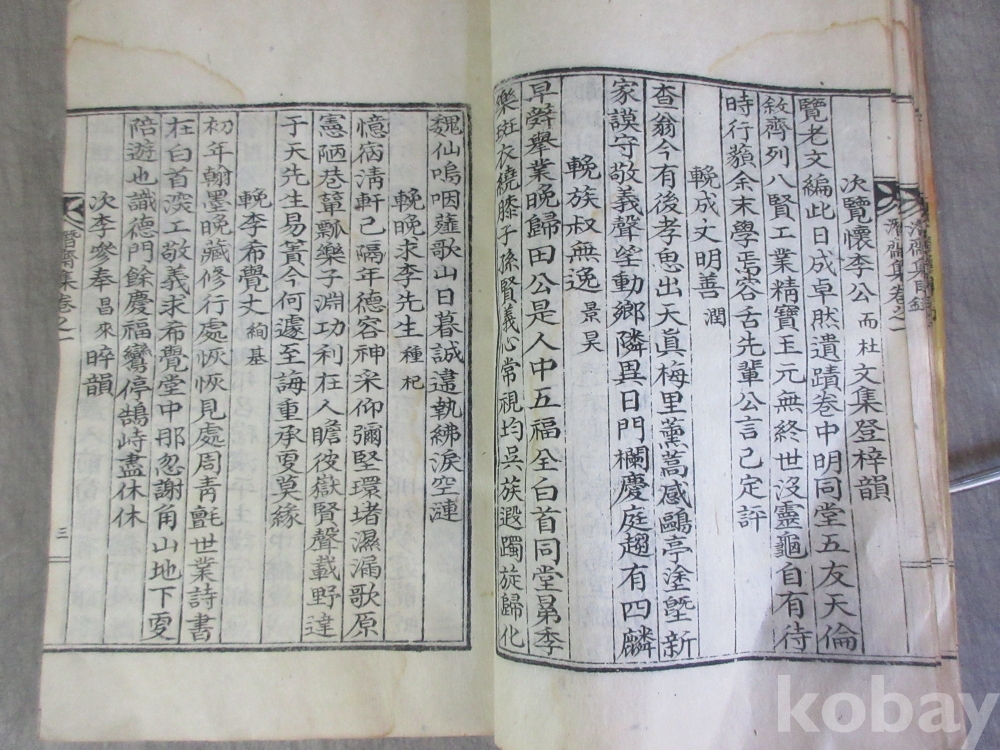 次覽懷李公而杜文集登梓韻
覽老文編此日成卓然遺蹟卷中明同堂五友天倫
敘齊列八賢工業精寶玉元無終世沒靈龜自有待
時行蘋余末學焉容舌先輩公言已定評
輓成文明善潤
查翁今有後孝思出天眞梅里薰蒿感鷗亭塗墍新
家謨守敬義聲華動鄉隣異日門欄慶庭趨有四麟
輓族叔無逸景昊
早辭擧業晚歸田公是人中五福全白首同堂昴季
樂斑衣繞膝子孫賢義心常視均吳族遐躅旋歸化
魏仙嗚咽薤歌山日暮誠違執紼淚空漣
輓晚求李先生種杞
憶病淸軒已隔年德容神采仰彌堅環堵濕漏歌原
憲陋巷簞瓢樂子淵功利在人瞻彼嶽賢聲載野達
于天先生易簀今何遽至誨重承更莫緣
輓李希覺丈絢基
初年翰墨晚藏修行處恢恢見處周靑氈世業詩書
在白首深工敬義求希覺堂中那忽謝角山地下更
陪遊也識德門餘慶福鸞停鵠峙盡休休
次李參奉昌來晬韻
潛齋集卷之一
三
kobay